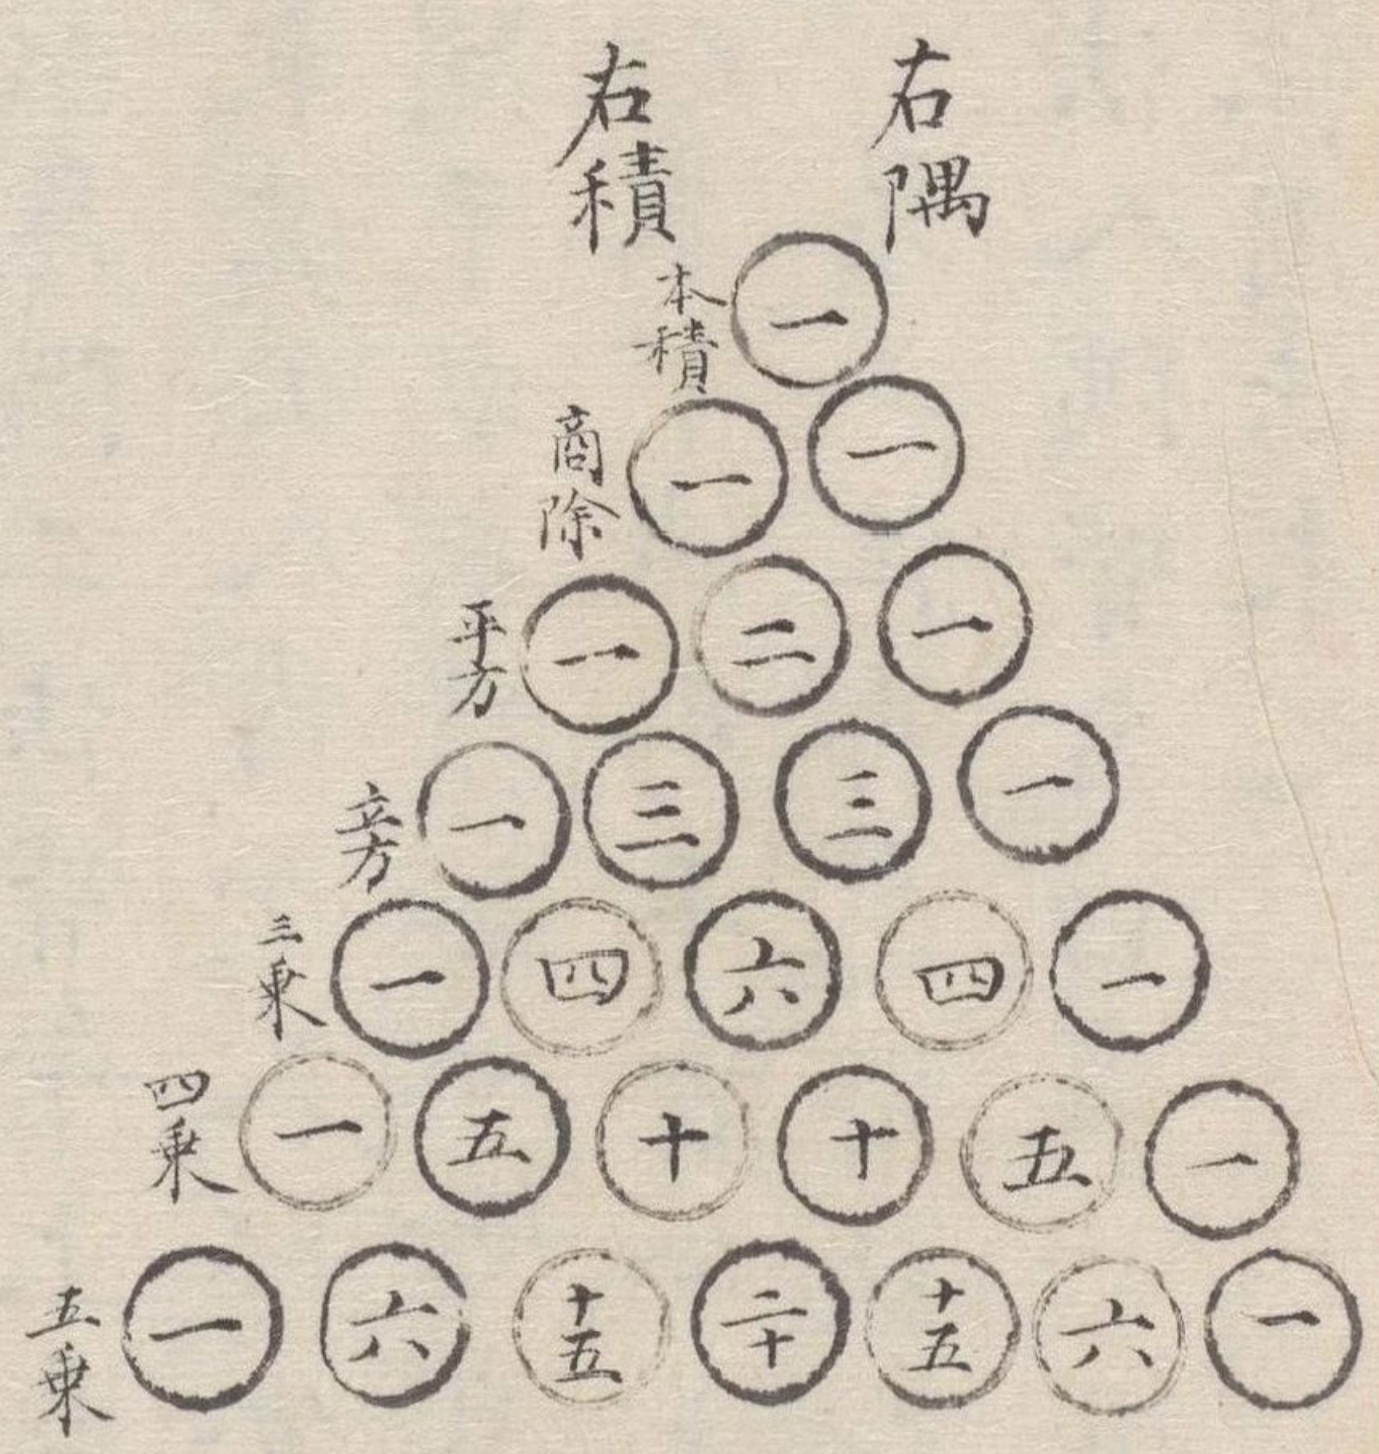 右積
右隅
本積 一
商除 一 一
平方 一 二 一
立方 一 三 三 一
三乗 一 四 六 四 一
四乗 一 五 十 十 五 一
五乗 一 六 十五 二十 十五 六 一